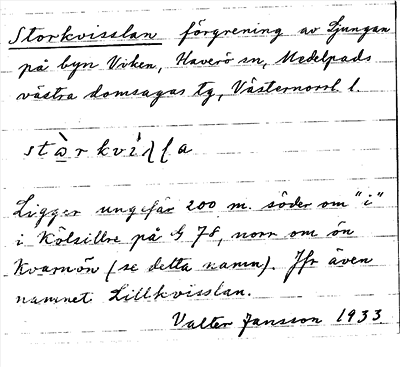 Storkvisslan förgrening av Ljungan
på byn Viken, Haverö sn, Medelpads
västra domsagas tg, Västernorrl. l.
Ligger ungefär 200 m. söder om "i"
i Kölsillre på G 78, norr om ön
Kvarnön (se detta namn). Jfr även
namnet Lillkvisslan.
Valter Jansson 1933.